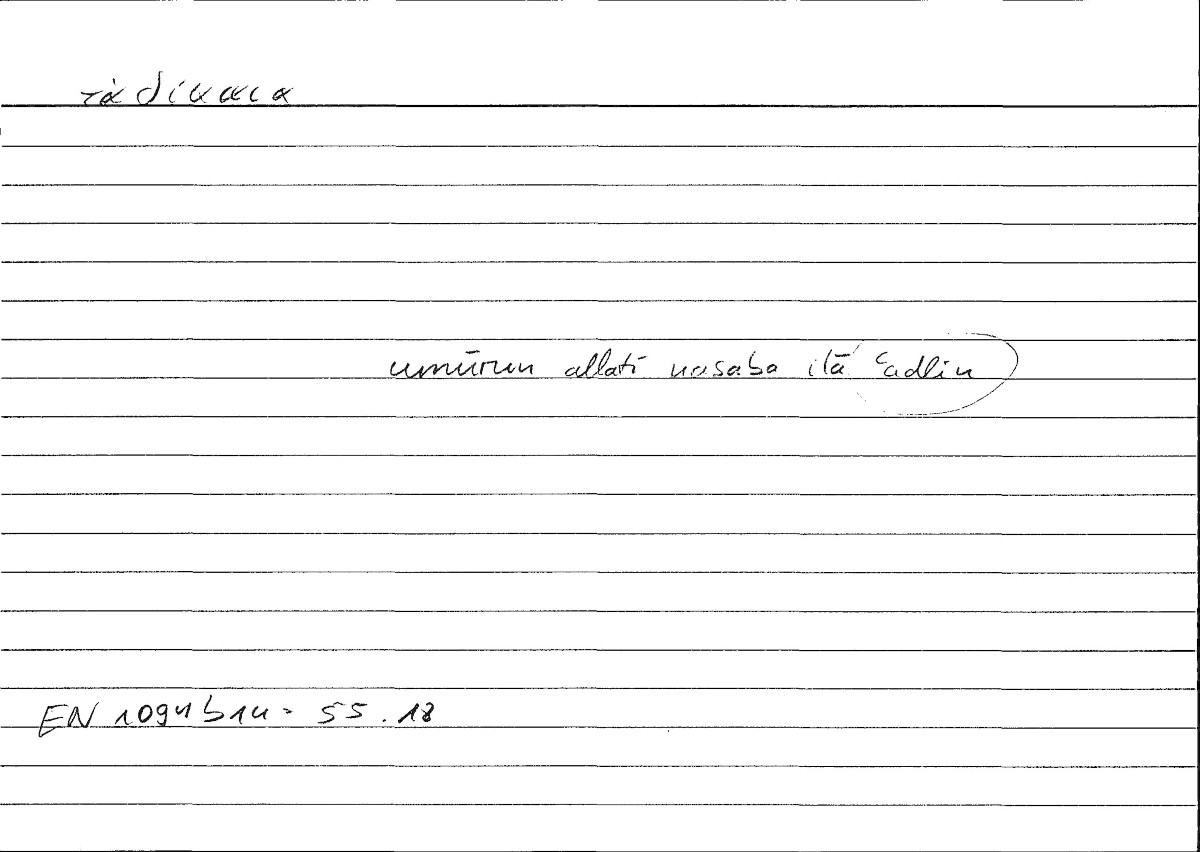 τὰ δίκαια
umūrun allatī nasaba ilā ʿadlin
EN 1094b14 = 55.18